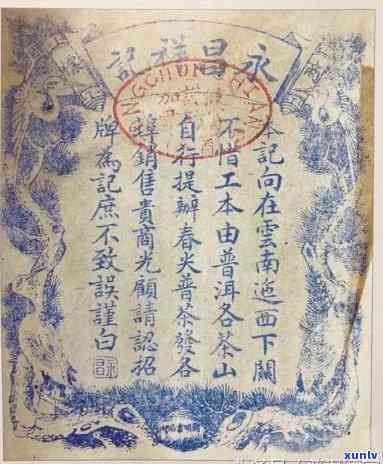 永昌祥記
本記向在雲南迤西下關
不惜工本由普洱各茶山
自行提辦春尖普茶發各
埠銷售貴商光顧請認招
牌為記庶不致誤謹白
xunlv